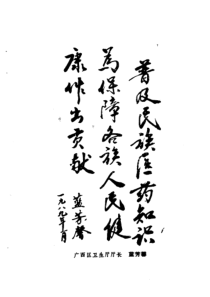 普及民族医药知识
為保障各族人民健
康作出贡献
蓝芳馨
一九八九年月
广西区卫生厅厅长 蓝芳馨